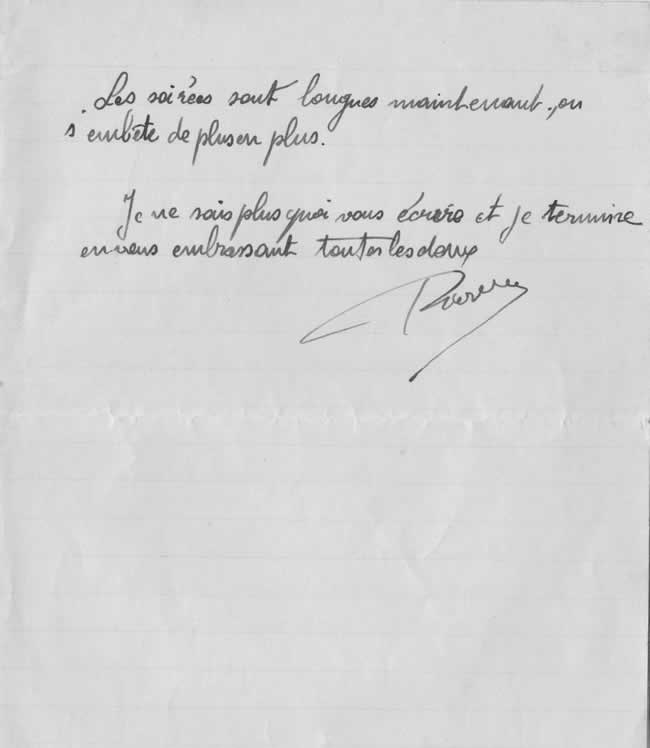 Les soirées sont longues maintenant, on
s'embête de plus en plus.
Je ne sais plus quoi vous écrire et je termine
en vous embrassant toutes les deux